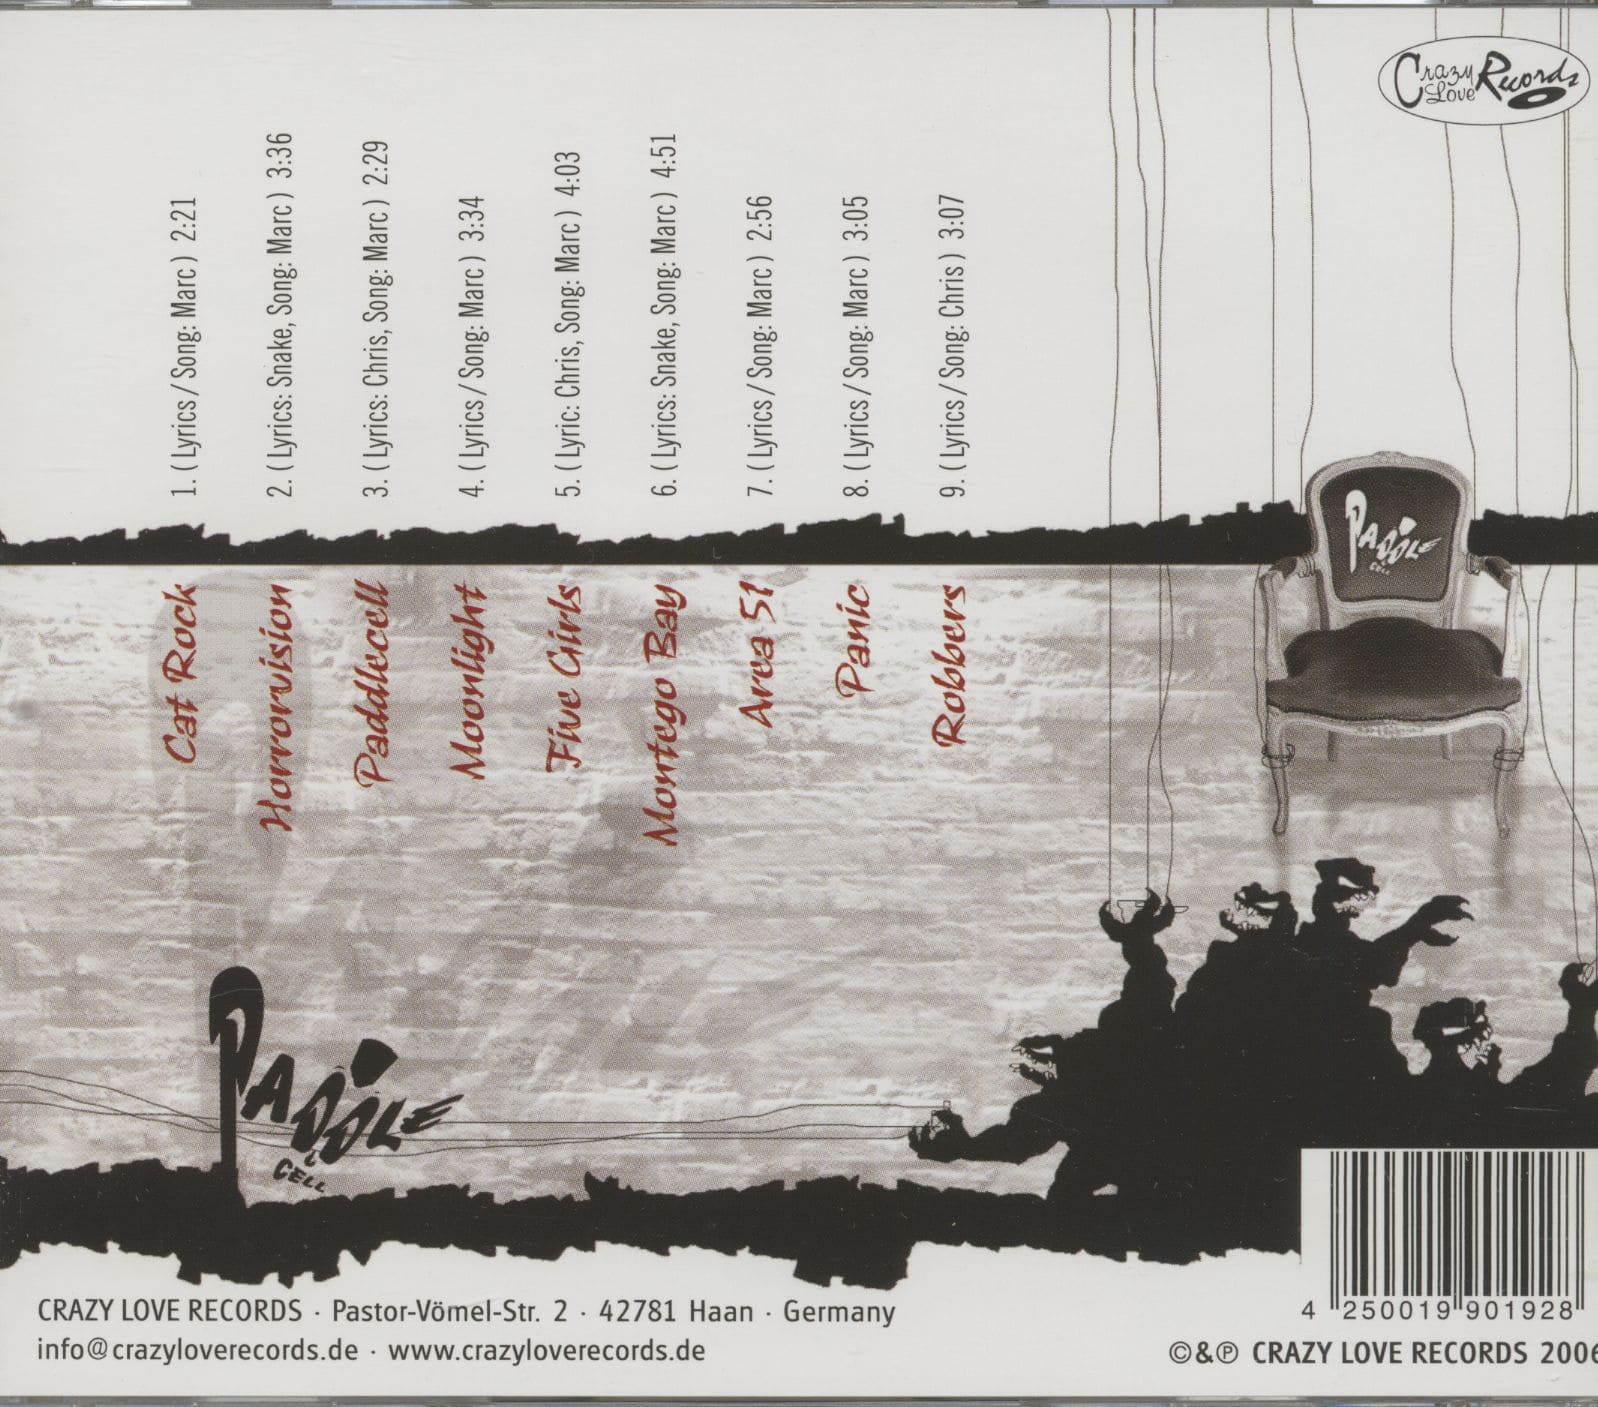 Crazy Love Records
1. ( Lyrics / Song: Marc ) 2:21
2. ( Lyrics: Snake, Song: Marc ) 3:36
3. ( Lyrics: Chris, Song: Marc ) 2:29
4. ( Lyrics / Song: Marc ) 3:34
5. ( Lyric: Chris, Song: Marc ) 4:03
6. ( Lyrics: Snake, Song: Marc ) 4:51
7. ( Lyrics / Song: Marc ) 2:56
8. ( Lyrics / Song: Marc ) 3:05
9. ( Lyrics / Song: Chris ) 3:07
PADDLE
CELL
Cat Rock
Horrorvision
Paddlecell
Moonlight
Five Girls
Montego Bay
Area 51
Panic
Robbers
PADDLE
CELL
CRAZY LOVE RECORDS · Pastor-Vömel-Str. 2 · 42781 Haan · Germany
info@crazyloverecords.de · www.crazyloverecords.de
4 250019 901928
©&℗ CRAZY LOVE RECORDS 2006